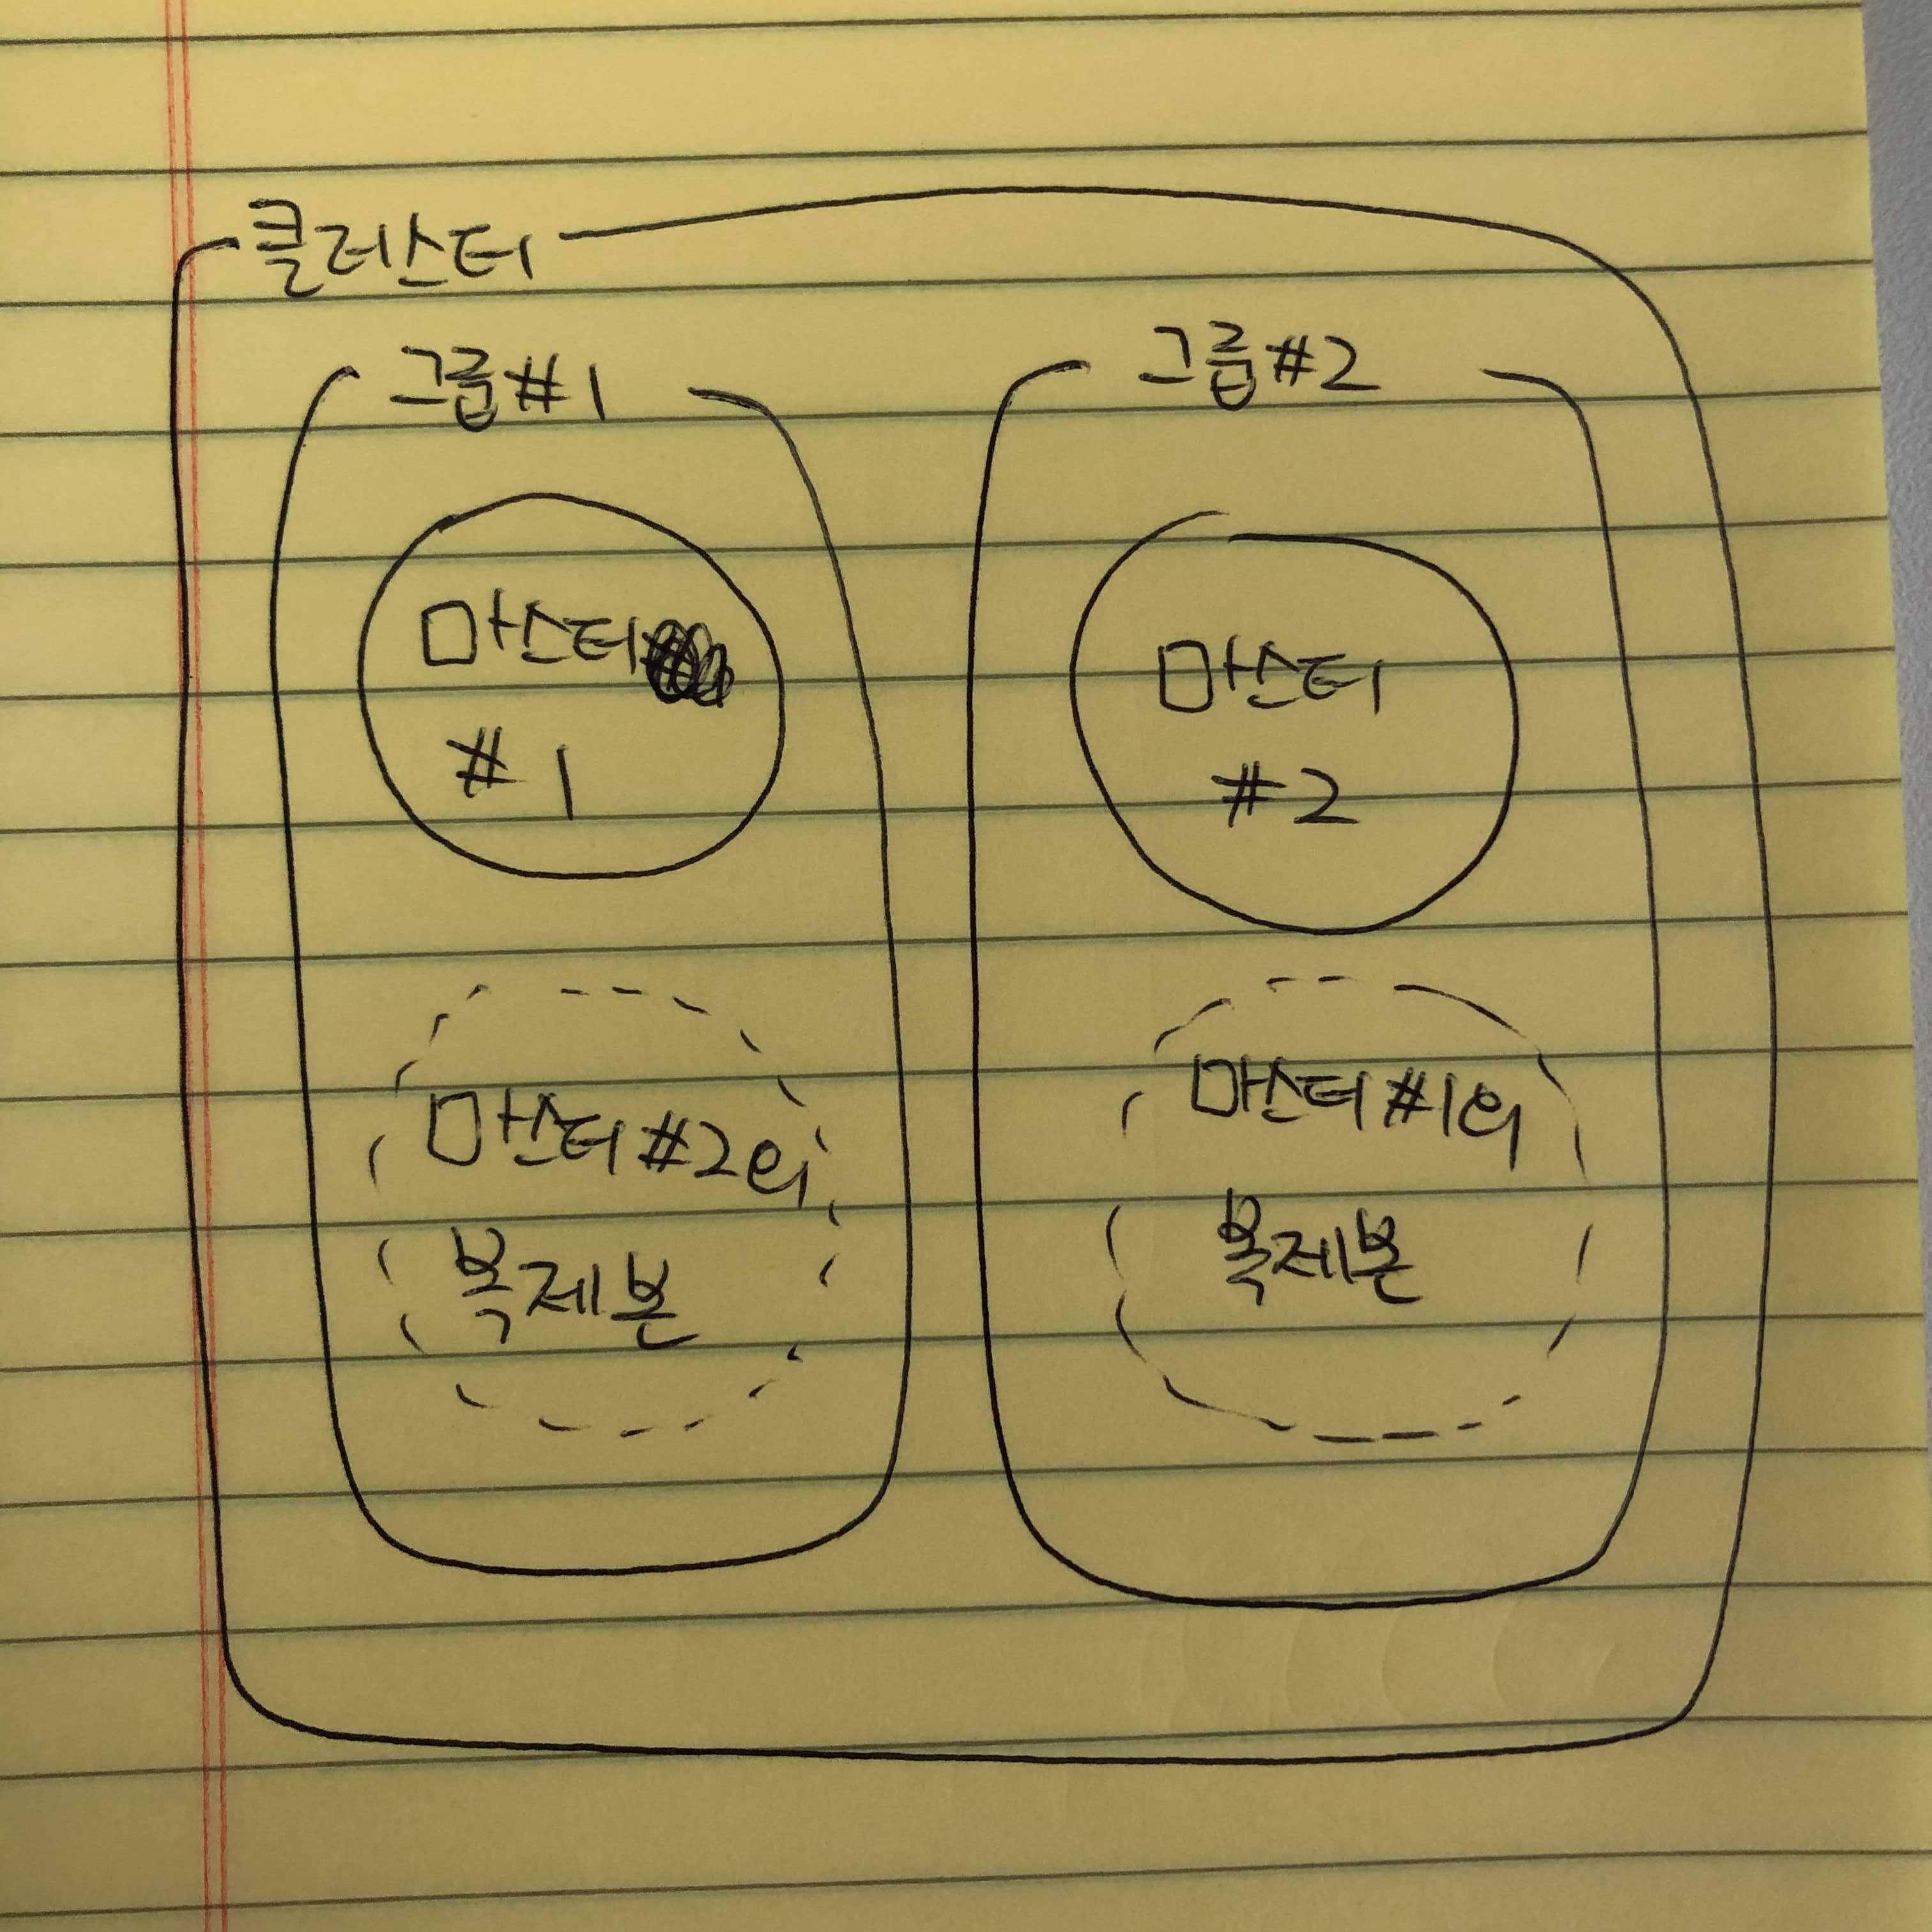 클러스터
그룹#1
마스터
#1
마스터#2의
복제본
그룹#2
마스터
#2
마스터#1의
복제본